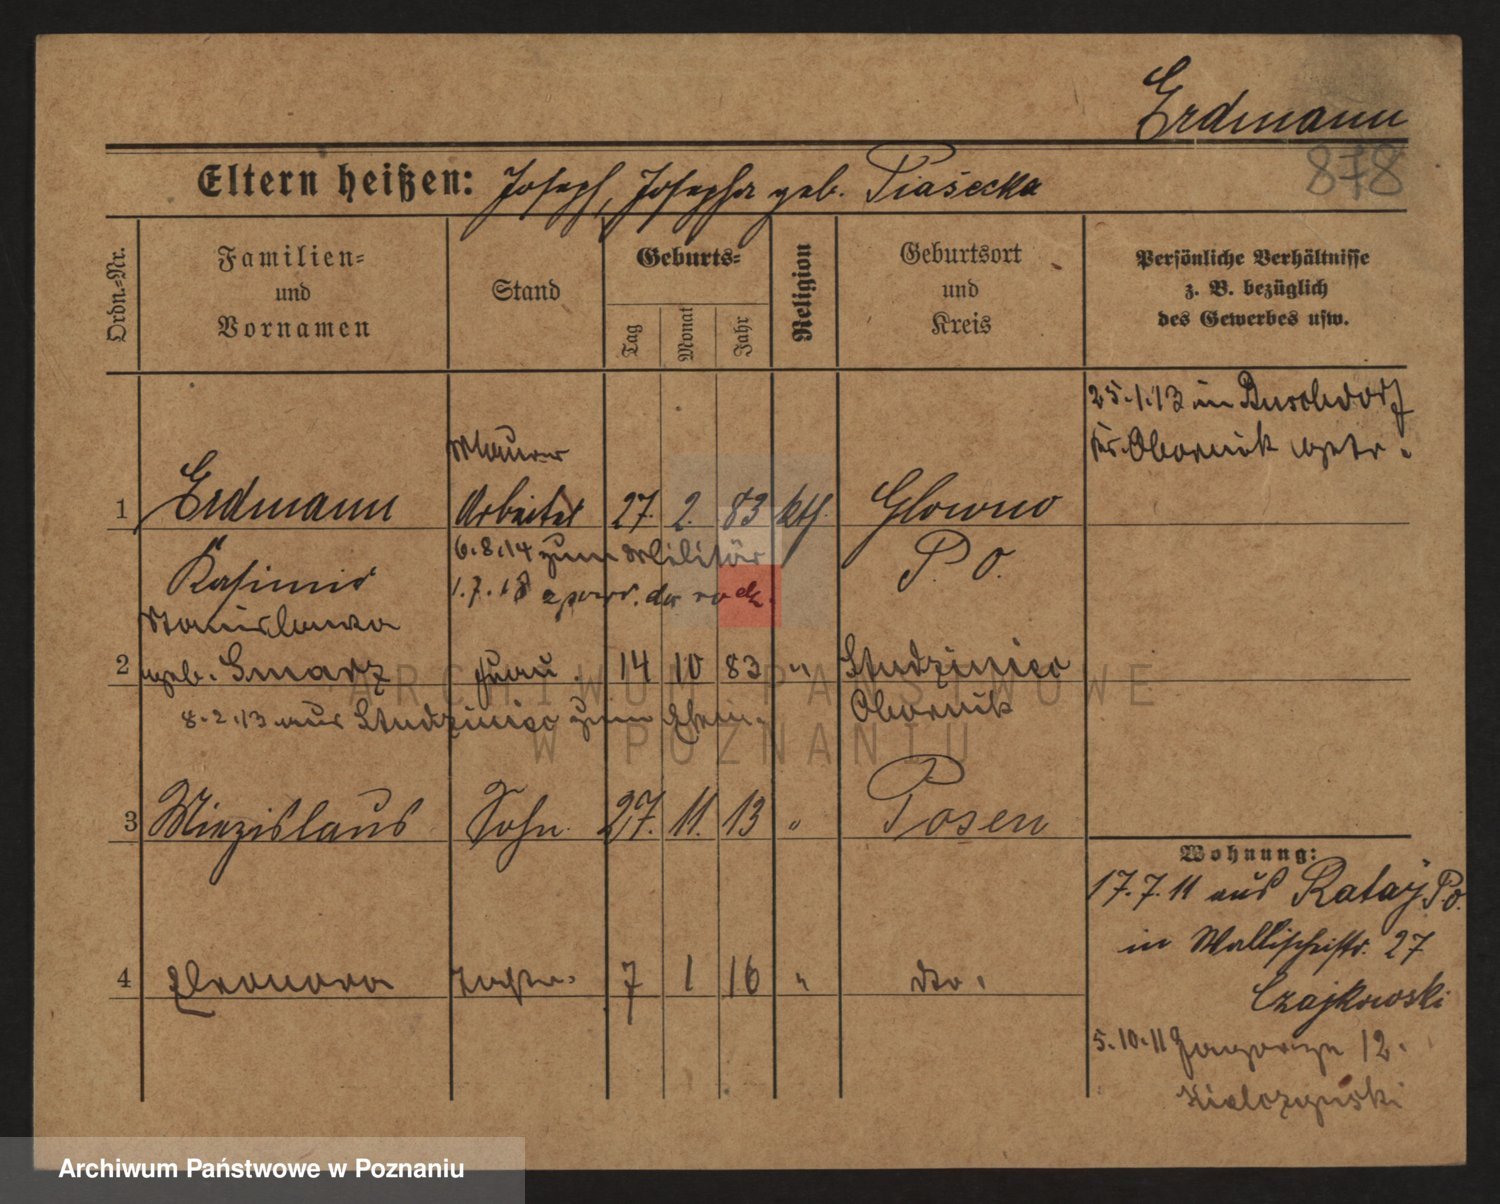 Erdmann
878
Eltern heißen: Joseph, Josepha geb. Piasecka
Ordn.-Nr.
Familien-
und
Vornamen
Stand
Geburts-
Tag
Monat
Jahr
Religion
Geburtsort
und
Kreis
Persönliche Verhältnisse
z. B. bezüglich
des Gewerbes usw.
25.1.13 in Buschdorf
Kr. Obornik getr.
Maurer
1 Erdmann Arbeiter 27. 2. 83 kth. Glowno
Kasimir 6.8.14 zum Militär P. O.
1.7.18
Stanislawa
2 geb. Smarz Frau 14 10 83 " Studziniec
8.2.13 aus Studziniec zum Ehem. Obornik
3 Miezislaus Sohn 27. 11. 13 " Posen
Wohnung:
17.7.11 aus Rataj Po.
in Wallischeistr. 27
Czajkowski
4 Eleonora Tochter 7 1 16 " dto.
5.10.11 Zagorze 12.
Kielczynski
ARCHIWUM PAŃSTWOWE
W POZNANIU
Archiwum Państwowe w Poznaniu